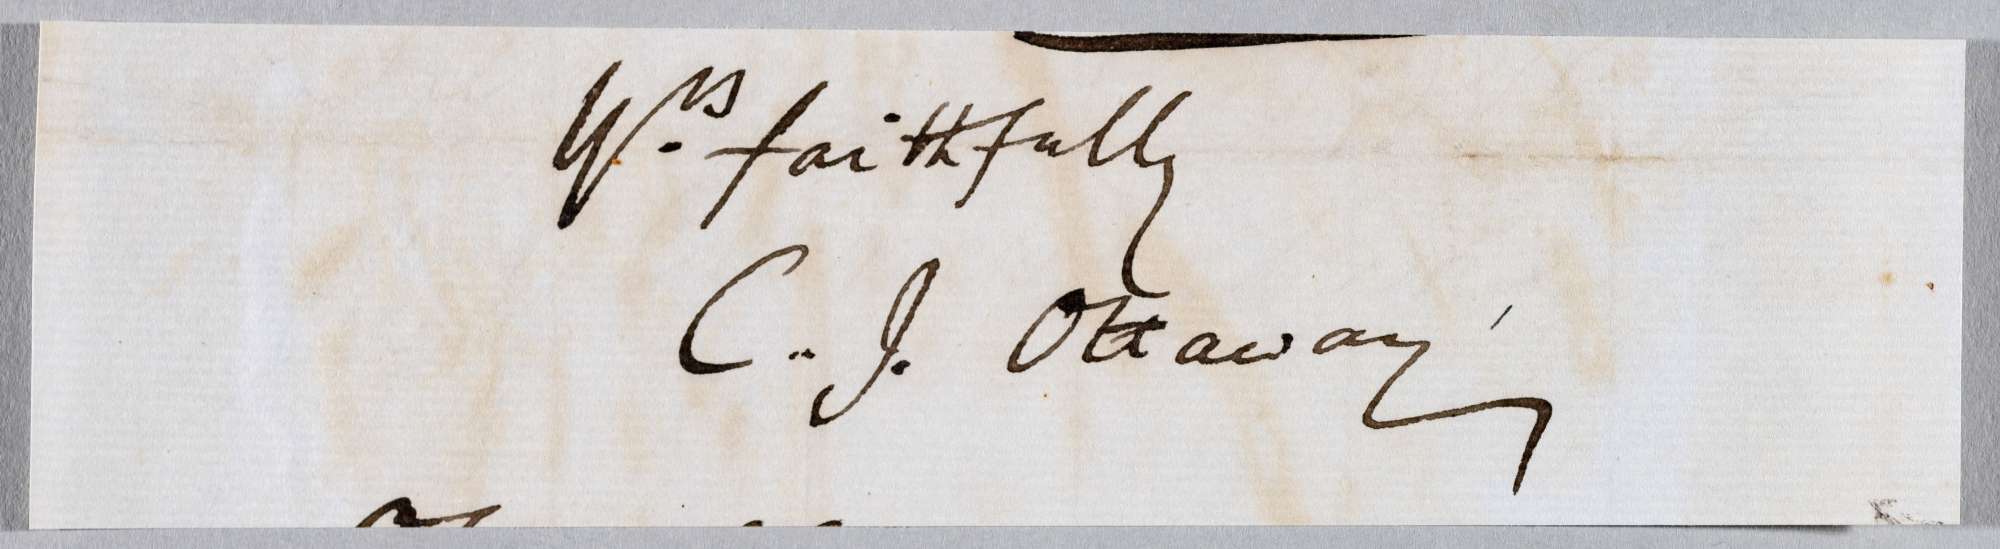 Yrs. faithfully
C. J. Ottaway